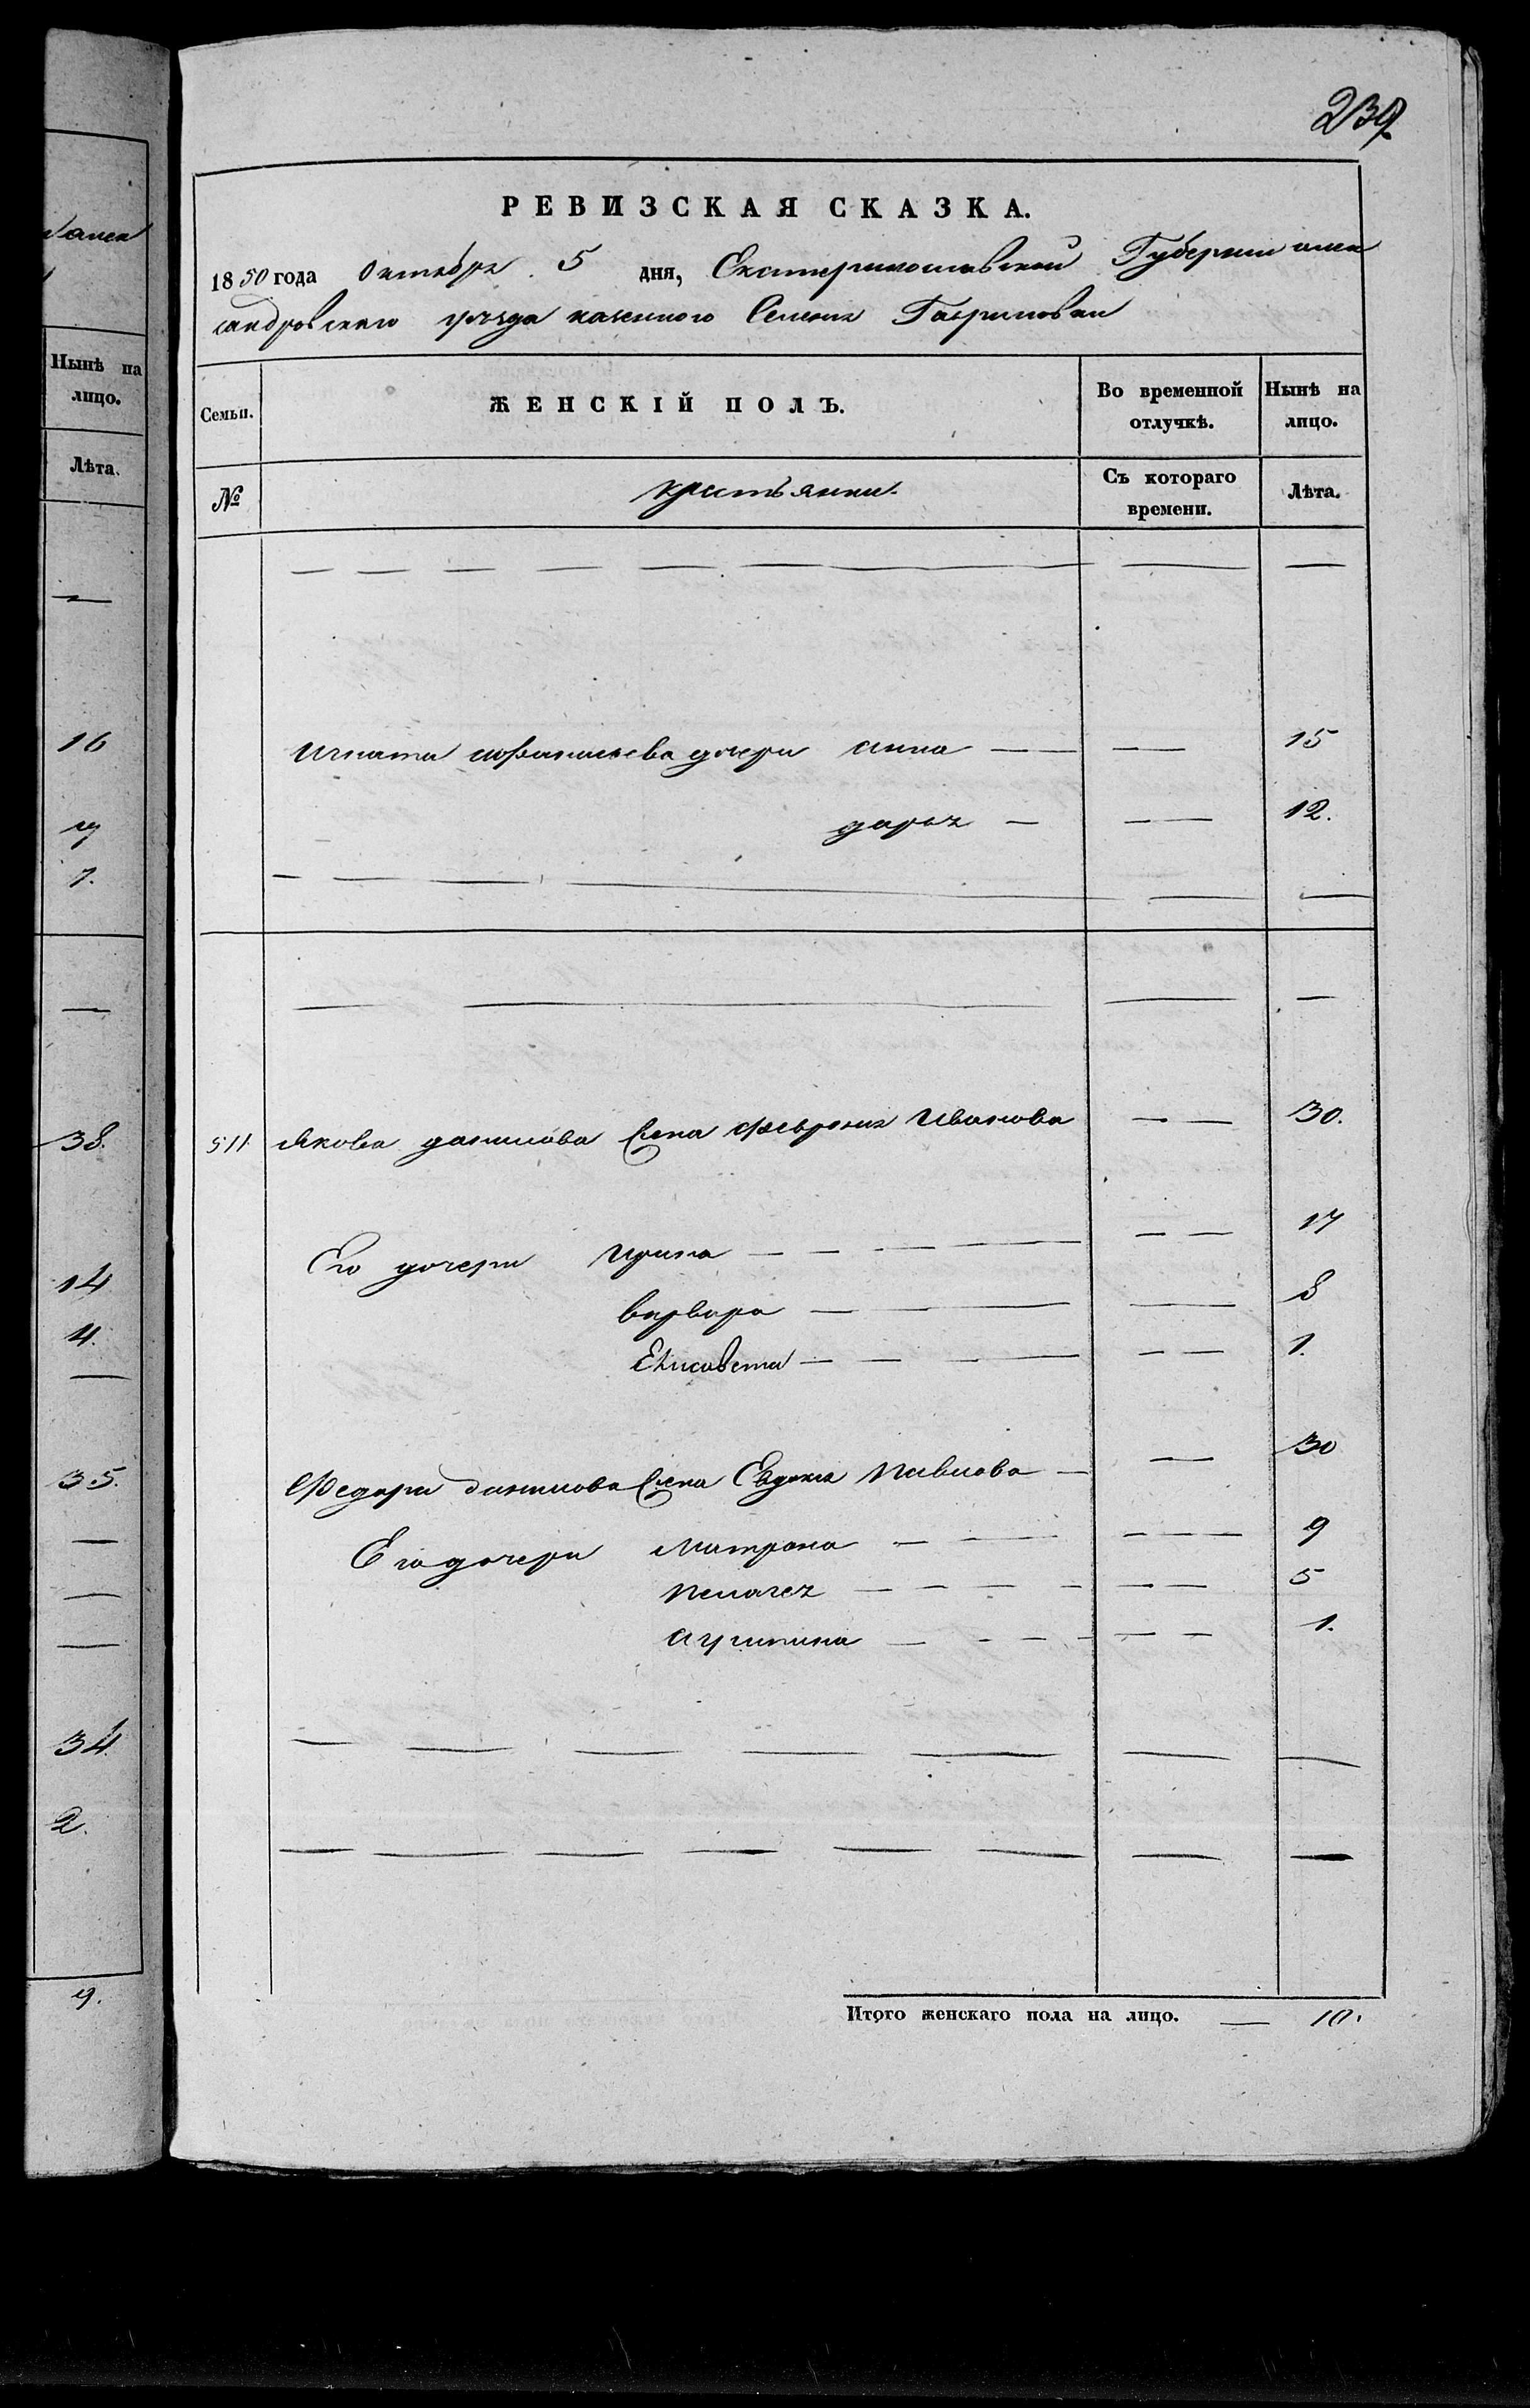 239
РЕВИЗСКАЯ СКАЗКА.
1850 года Октября 5 дня, Екатеринославской Губернии алек
сандровского уезда казенного Селения Гавриловки
Семьи.
ЖЕНСКІЙ ПОЛЪ.
Во временной отлучкѣ.
Нынѣ на лицо.
№
крестьянки.
Съ котораго времени.
Лѣта.
Игната дочери анна 15
дарья 12.
511 Якова данилова жена Феврония Иванова 30.
Его дочери Ирина 17
варвара 8
Елисавета 1.
Федора данилова жена Евдокия Павлова 30
Его дочери Матрона 9
Пелагея 5
агрипина 1.
Итого женскаго пола на лицо. 10.
Нынѣ на
лицо.
Лѣта.
16
7.
38.
14
4.
35.
34
2.
9.